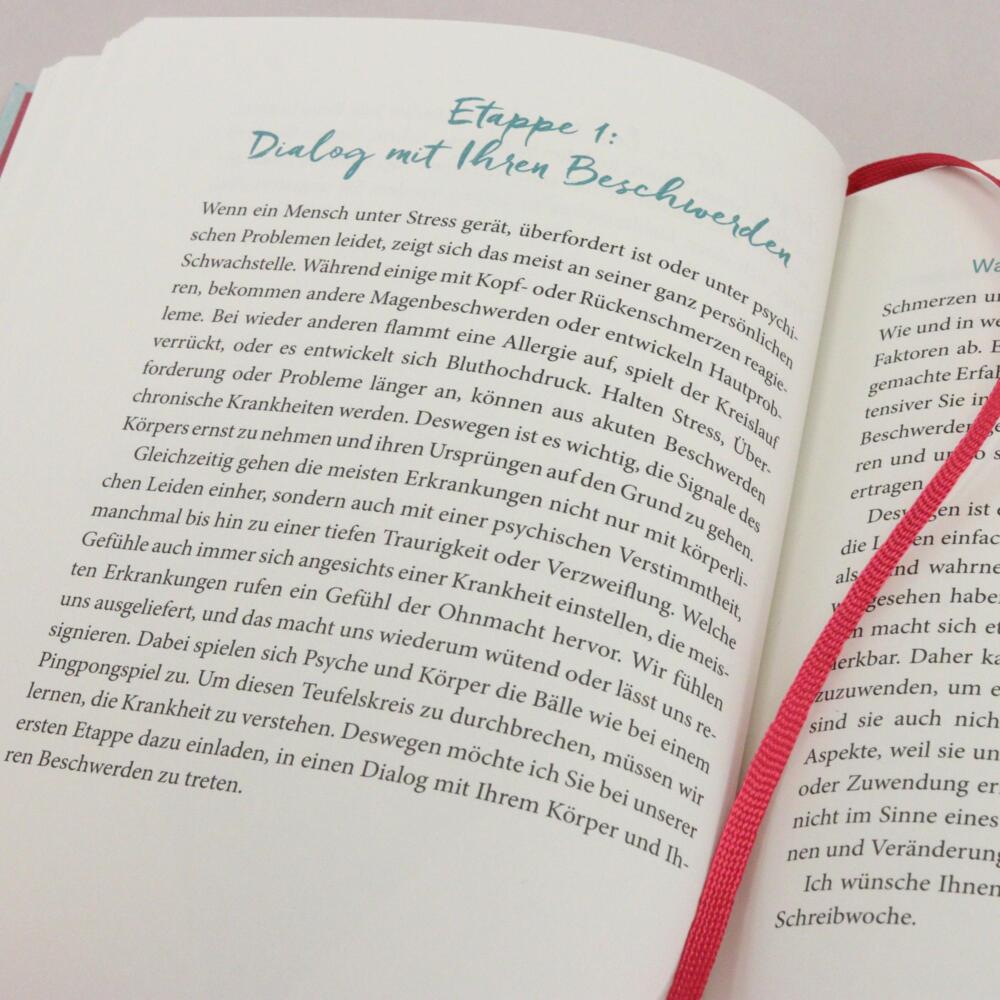 Etappe 1:
Dialog mit Ihren Beschwerden
Wenn ein Mensch unter Stress gerät, überfordert ist oder unter psychi-
schen Problemen leidet, zeigt sich das meist an seiner ganz persönlichen
Schwachstelle. Während einige mit Kopf- oder Rückenschmerzen reagie-
ren, bekommen andere Magenbeschwerden oder entwickeln Hautprob-
leme. Bei wieder anderen flammt eine Allergie auf, spielt der Kreislauf
verrückt, oder es entwickelt sich Bluthochdruck. Halten Stress, Über-
forderung oder Probleme länger an, können aus akuten Beschwerden
chronische Krankheiten werden. Deswegen ist es wichtig, die Signale des
Körpers ernst zu nehmen und ihren Ursprüngen auf den Grund zu gehen.
Gleichzeitig gehen die meisten Erkrankungen nicht nur mit körperli-
chen Leiden einher, sondern auch mit einer psychischen Verstimmtheit,
manchmal bis hin zu einer tiefen Traurigkeit oder Verzweiflung. Welche
Gefühle auch immer sich angesichts einer Krankheit einstellen, die meis-
ten Erkrankungen rufen ein Gefühl der Ohnmacht hervor. Wir fühlen
uns ausgeliefert, und das macht uns wiederum wütend oder lässt uns re-
signieren. Dabei spielen sich Psyche und Körper die Bälle wie bei einem
Pingpongspiel zu. Um diesen Teufelskreis zu durchbrechen, müssen wir
lernen, die Krankheit zu verstehen. Deswegen möchte ich Sie bei unserer
ersten Etappe dazu einladen, in einen Dialog mit Ihrem Körper und Ih-
ren Beschwerden zu treten.
Schmerzen
Wie und in
Faktoren ab.
gemachte
tensiver Sie
Beschwerden
ren und
ertragen
ist
die einfach
als wahrne
gesehen haben
macht sich
Daher
zuzuwenden, um
sind sie auch
Aspekte, weil sie
oder Zuwendung
nicht im Sinne eines
nen und Veränderung
Ich wünsche Ihnen
Schreibwoche.